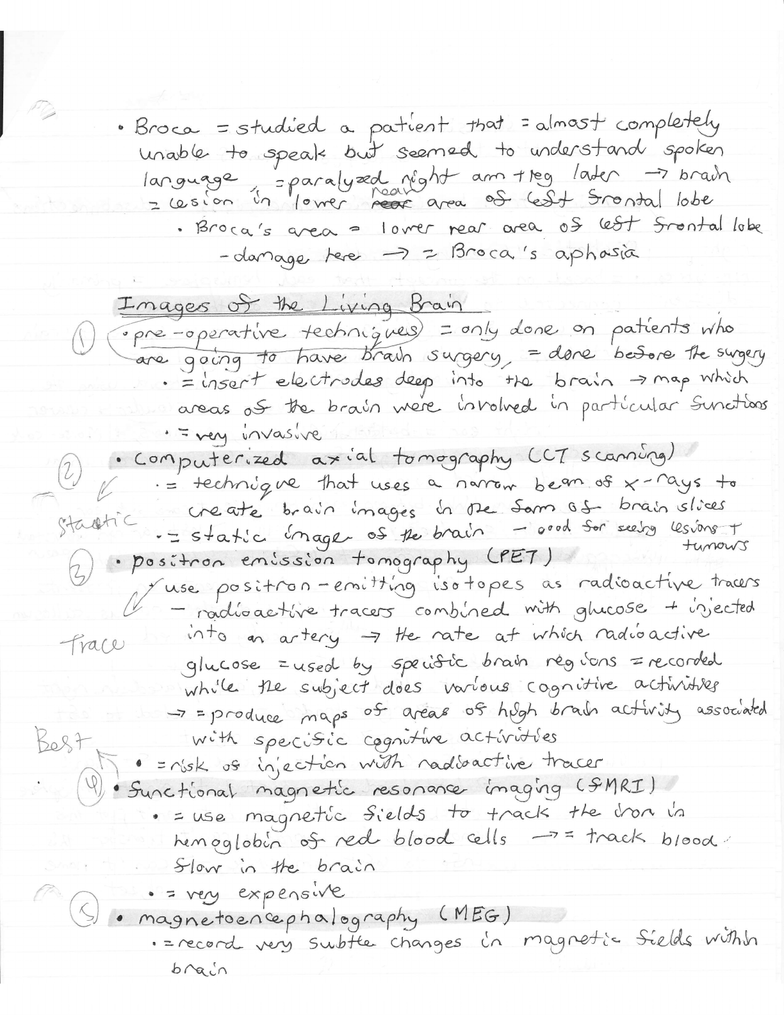 • Broca = studied a patient that = almost completely
unable to speak but seemed to understand spoken
language, = paralyzed right arm + leg later → brain
= lesion in lower rear rear area of left frontal lobe
• Broca's area = lower rear area of left frontal lobe
- damage here → = Broca's aphasia
Images of the Living Brain
① • pre-operative techniques = only done on patients who
are going to have brain surgery, = done before the surgery
• = insert electrodes deep into the brain → map which
areas of the brain were involved in particular functions
• = very invasive
② • Computerized axial tomography (CT scanning)
• = technique that uses a narrow beam of x-rays to
create brain images in the form of brain slices
Stactic • = static image of the brain - good for seeing lesions +
tumours
③ • positron emission tomography (PET)
• use positron-emitting isotopes as radioactive tracers
- radioactive tracers combined with glucose + injected
Trace into an artery → the rate at which radioactive
glucose = used by specific brain regions = recorded
while the subject does various cognitive activities
→ = produce maps of areas of high brain activity associated
Best with specific cognitive activities
• = risk of injection with radioactive tracer
④ • functional magnetic resonance imaging (fMRI)
• = use magnetic fields to track the iron in
hemoglobin of red blood cells → = track blood
flow in the brain
• = very expensive
⑤ • magnetoencephalography (MEG)
• = record very subtle changes in magnetic fields within
brain